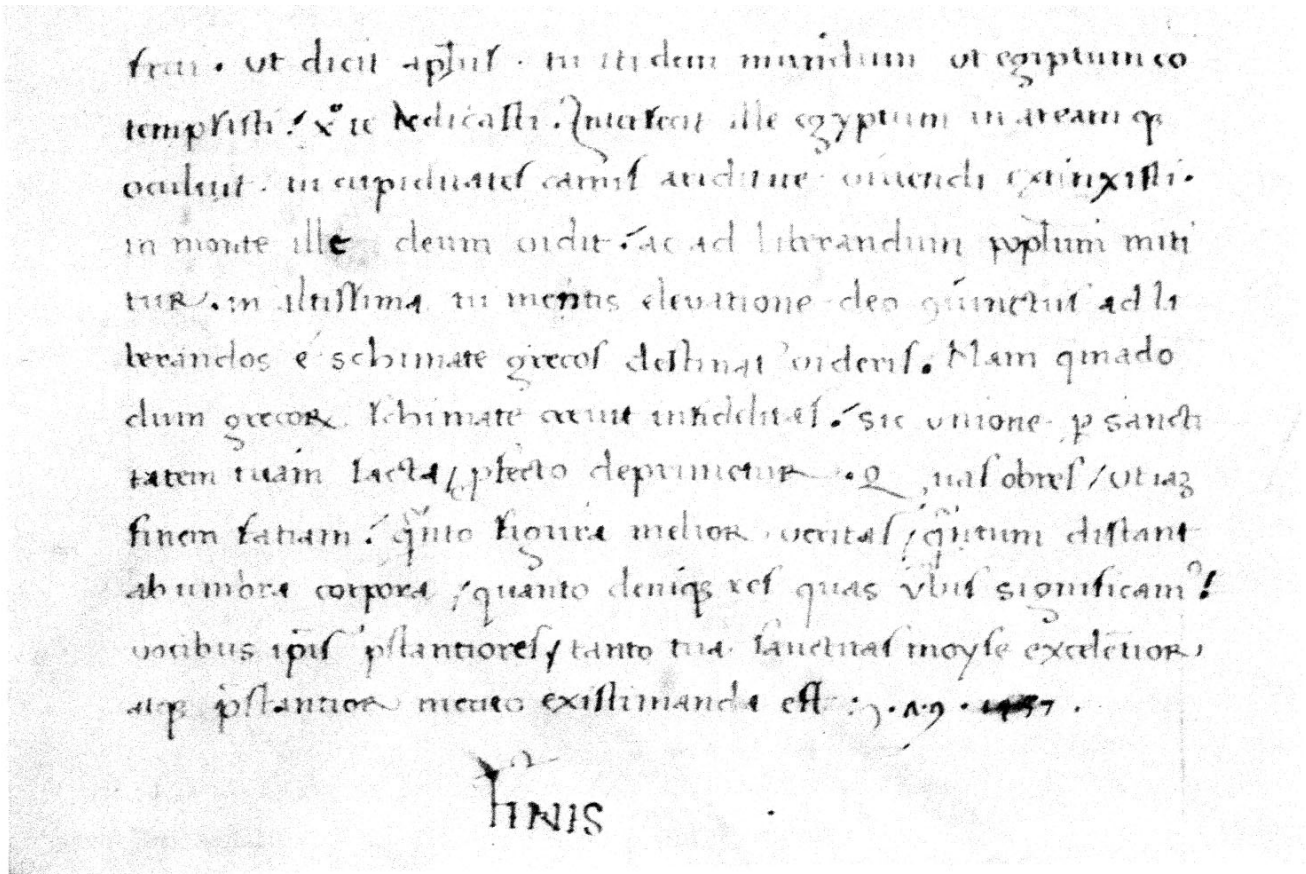 frui. ut dicit apl̅us. tu itidem mundum ut egiptum co
tempsisti: x̅o te dedicasti. Interfecit ille egyptum in arenamq;
occuluit. tu cupiditates carnis ariditate vivendi extinxisti.
in monte ille deum vidit: ac ad liberandum poplum miti
tur. in altissima tu mentis elevatione deo coniunctus ad li
berandos e schimate grecos destinat᾽ videris. Nam qmado
dum grecor schimate crevit infidelitas: sic unione p sancti
tatem tuam facta, pfecto deprimetur. Quas obres / ut iaz
finem fatiam: qnto figura melior veritas, qntum distant
ab umbra corpora, quanto deniq; res quas vbis significam᾽:
vocibus ipis pstantiores / tanto tua sanctitas moyse excelentior
atq; pstantior merito existimanda est: 1437.
FINIS